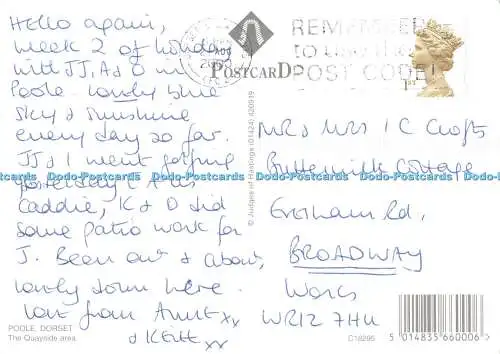 Hello again,
week 2 of holiday
with JJ, A & D in
Poole. Lovely blue
sky & sunshine
every day so far.
JJ & I went golfing
yesterday, A as
caddie, K & D did
some patio work for
J. Been out & about,
lovely down here.
Love from Anne xx
& Keith xx
POOLE, DORSET
The Quayside Area
REMEMBER
to use the
POST CODE
POSTCARD
1ST
© Judges of Hastings (01424) 420919
Mr & Mrs I C Crofts
Butterwick Cottage
Evesham Rd,
BROADWAY
Worcs
WR12 7HU
C18295
5 014835 660006
Dodo-Postcards Dodo-Postcards Dodo-Postcards Dodo-Postcards Dodo-Postcards Dodo-Postcards